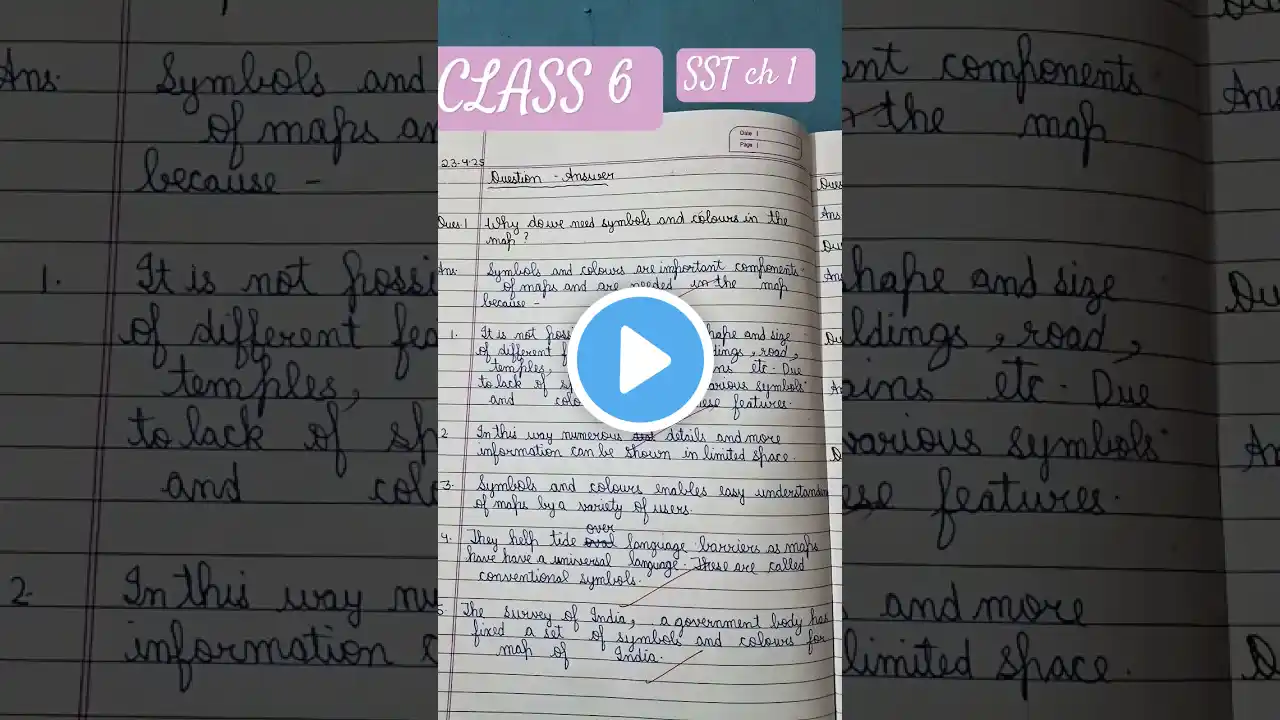 CLASS 6
SST ch 1
Date
Page
23-4-25
Question - Answer
Ques.1 Why do we need symbols and colours in the
map ?
Ans. Symbols and colours are important components
of maps and are needed in the map
because -
1. It is not possi shape and size
of different fea ldings, road,
temples, ins etc. Due
to lack of sp various symbols
and colo ese features.
2 In this way numerous details and more
information can be shown in limited space.
3. Symbols and colours enables easy understanding
of maps by a variety of users.
over
4. They help tide language barriers as maps
have have a universal language. These are called
conventional symbols.
5 The survey of India, a government body has
fixed a set of symbols and colours for
map of India.